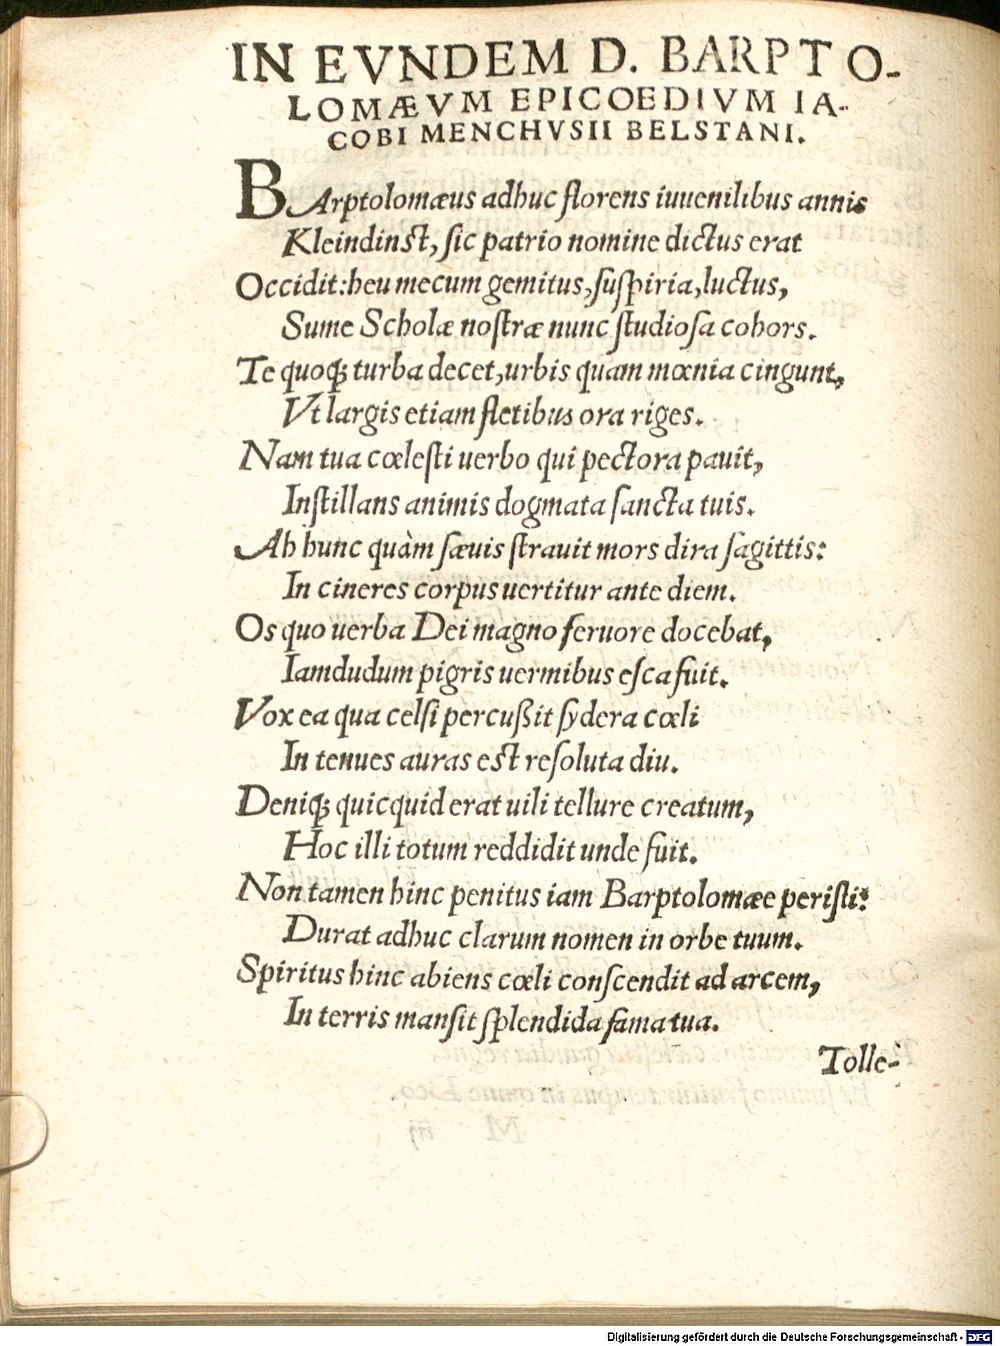 IN EVNDEM D. BARPTO-
LOMÆVM EPICOEDIVM IA-
COBI MENCHVSII BELSTANI.
BArptolomæus adhuc florens iuuenilibus annis
Kleindinſt, ſic patrio nomine dictus erat
Occidit: heu mecum gemitus, ſuſpiria, luctus,
Sume Scholæ noſtræ nunc ſtudioſa cohors.
Te quoq; turba decet, urbis quam mœnia cingunt,
Vt largis etiam fletibus ora riges.
Nam tua cœleſti uerbo qui pectora pauit,
Inſtillans animis dogmata ſancta tuis.
Ah hunc quàm ſæuis ſtrauit mors dira ſagittis:
In cineres corpus uertitur ante diem.
Os quo uerba Dei magno feruore docebat,
Iamdudum pigris uermibus eſca fuit.
Vox ea qua celſi percußit ſydera cœli
In tenues auras eſt reſoluta diu.
Deniq; quicquid erat uili tellure creatum,
Hoc illi totum reddidit unde fuit.
Non tamen hinc penitus iam Barptolomæe periſti:
Durat adhuc clarum nomen in orbe tuum.
Spiritus hinc abiens cœli conſcendit ad arcem,
In terris manſit ſplendida fama tua.
Tolle-
Digitalisierung gefördert durch die Deutsche Forschungsgemeinschaft - DFG